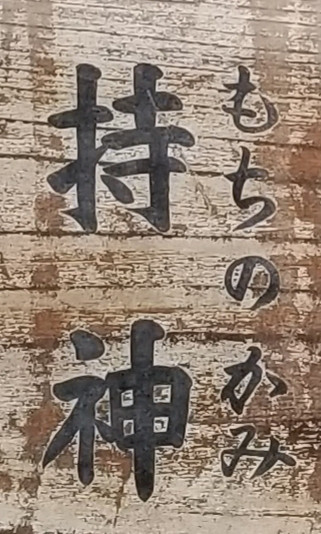 もちのかみ
持神